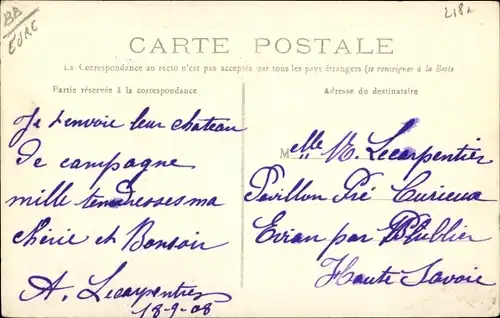 BB
EURE
218a
CARTE POSTALE
La Correspondance au recto n'est pas acceptée par tous les pays étrangers (se renseigner à la Poste
Partie réservée à la correspondance
Adresse du destinataire
Je t'envoie leur chateau
De campagne
mille tendresses ma
chérie et Bonsoir
A. Lecarpentier
18-9-08
Melle M. Lecarpentier
Pavillon Pré Curieux
Evian par Publier
Haute Savoie